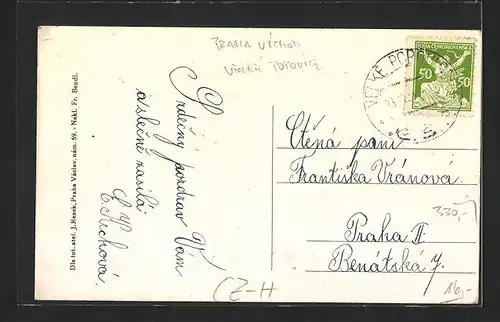 PRAHA VÝCHOD
VELKÉ POPOVICE
VELKÉ POPO
POŠTA ČESKOSLOVENSKÁ
50 50
Srdečný pozdrav Vám
a slečně zasílá
Dle fot. atel. J. Rezek, Praha Václav. nám. 59. - Nakl. Fr. Bendl.
Ctěná paní
Františka Vránová
Praha II
Benátská 7.
330,-
16,-
(Z-H